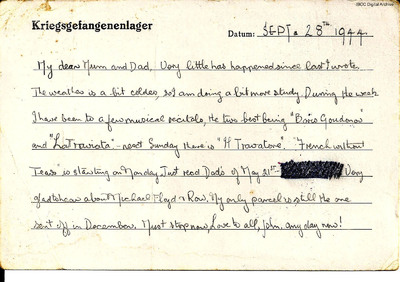 IBCC Digital Archive
Kriegsgefangenenlager
Datum: SEPT. 28TH 1944
My dear Mum and Dad, Very little has happened since last I wrote.
The weather is a bit colder, so I am doing a bit more study. During the week
I have been to a few musical recitals, the two best being "Boris Goudonov"
and "La Traviata" - next Sunday there is "Il Travatore". "French without
Tears" is starting on Monday. Just read Dad's of May 21st - Very
glad to hear about Michael Floyd & Row. My only parcel is still the one
sent off in December. Must stop now, Love to all, John. any day now!